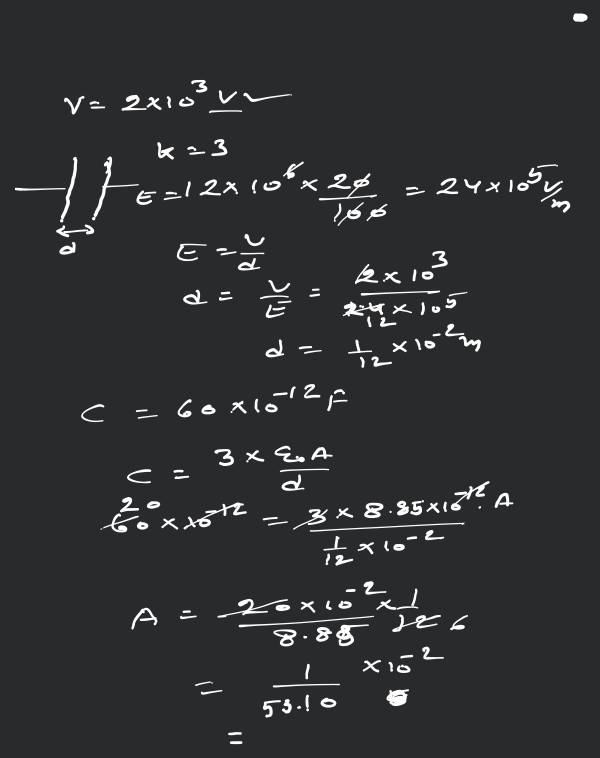 V = 2×10³ V
k = 3
E = 12 × 10⁶ × 20/100 = 24 × 10⁵ V/m
d
E = V/d
d = V/E = 2 × 10³ / 24 × 10⁵
12
d = 1/12 × 10⁻² m
C = 60 × 10⁻¹² F
C = 3 × ε₀A / d
20
60 × 10⁻¹² = 3 × 8.85 × 10⁻¹² . A / 1/12 × 10⁻²
A = 20 × 10⁻² / 8.85 × 1 / 12 6
= 1 / 53.10 × 10⁻²
=